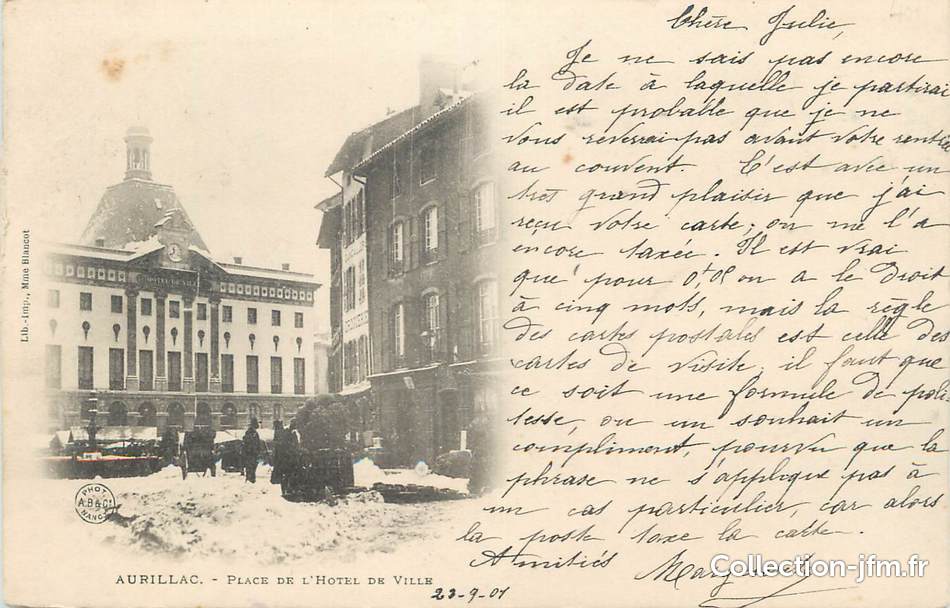 Chère Julie,
Je ne sais pas encore
la date à laquelle je partirai
il est probable que je ne
vous reverrai pas avant votre rentrée
au couvent. C'est avec un
très grand plaisir que j'ai
reçu votre carte; on ne l'a
encore taxée. Il est vrai
que pour 0f,05 on a le droit
à cinq mots, mais la règle
des cartes postales est celle des
cartes de visite, il faut que
ce soit une formule de poli-
tesse, ou un souhait un
compliment, pourvu que la
phrase ne s'applique pas à
un cas particulier, car alors
la poste taxe la carte.
Amitiés
HOTEL DE VILLE
Lib.-Imp., Mme Blancot
PHOT
A.B & Cie
NANCY
AURILLAC. - PLACE DE L'HOTEL DE VILLE
23-9-01
Collection-jfm.fr